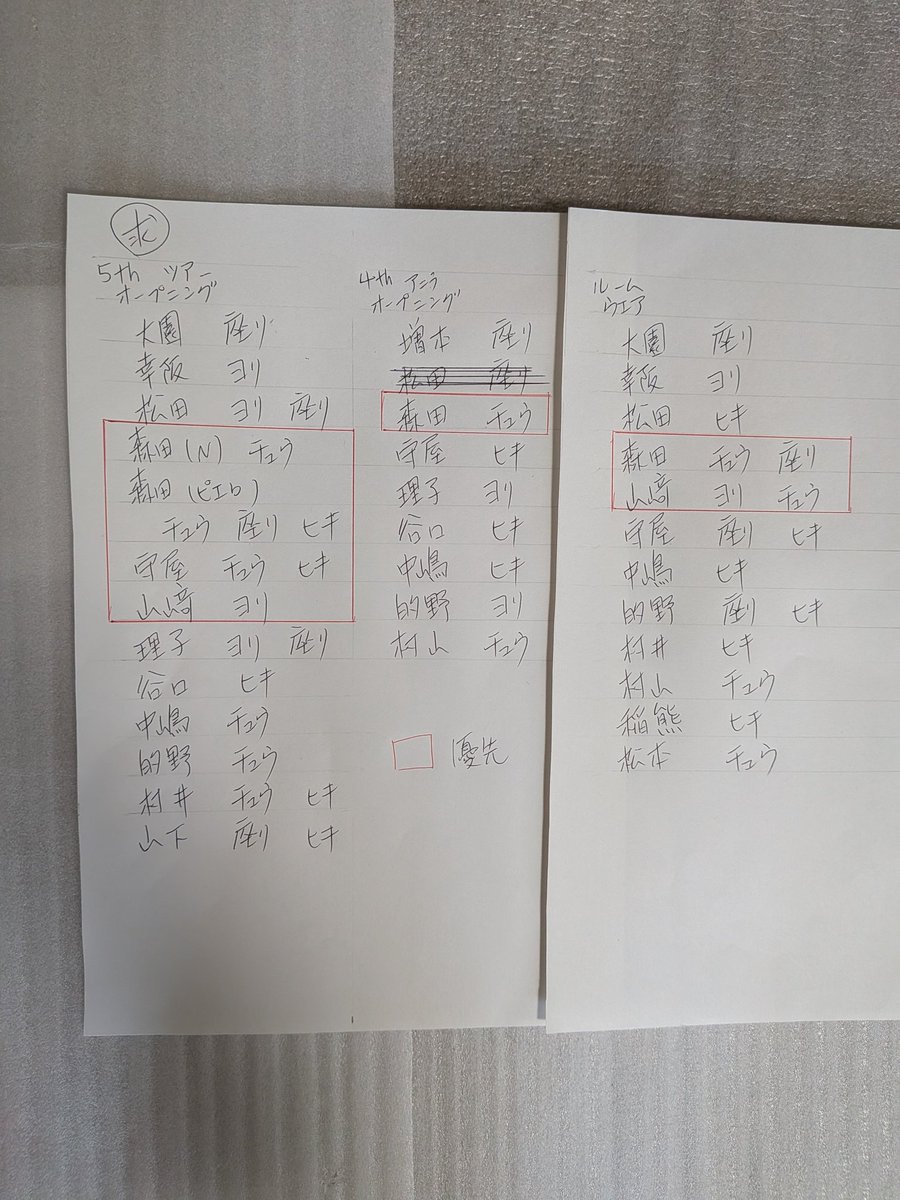 求
5th ツアー
オープニング
大園 座り
幸阪 ヨリ
松田 ヨリ 座り
森田(N) チュウ
森田(ピエロ)
チュウ 座り ヒキ
守屋 チュウ ヒキ
山﨑 ヨリ
理子 ヨリ 座り
谷口 ヒキ
中嶋 チュウ
的野 チュウ
村井 チュウ ヒキ
山下 座り ヒキ
4th アニラ
オープニング
増本 座り
松田 座り
森田 チュウ
守屋 ヒキ
理子 ヨリ
谷口 ヒキ
中嶋 ヒキ
的野 ヨリ
村山 チュウ
優先
ルーム
ウエア
大園 座り
幸阪 ヨリ
松田 ヒキ
森田 チュウ 座り
山﨑 ヨリ チュウ
守屋 座り ヒキ
中嶋 ヒキ
的野 座り ヒキ
村井 ヒキ
村山 チュウ
稲熊 ヒキ
松本 チュウ